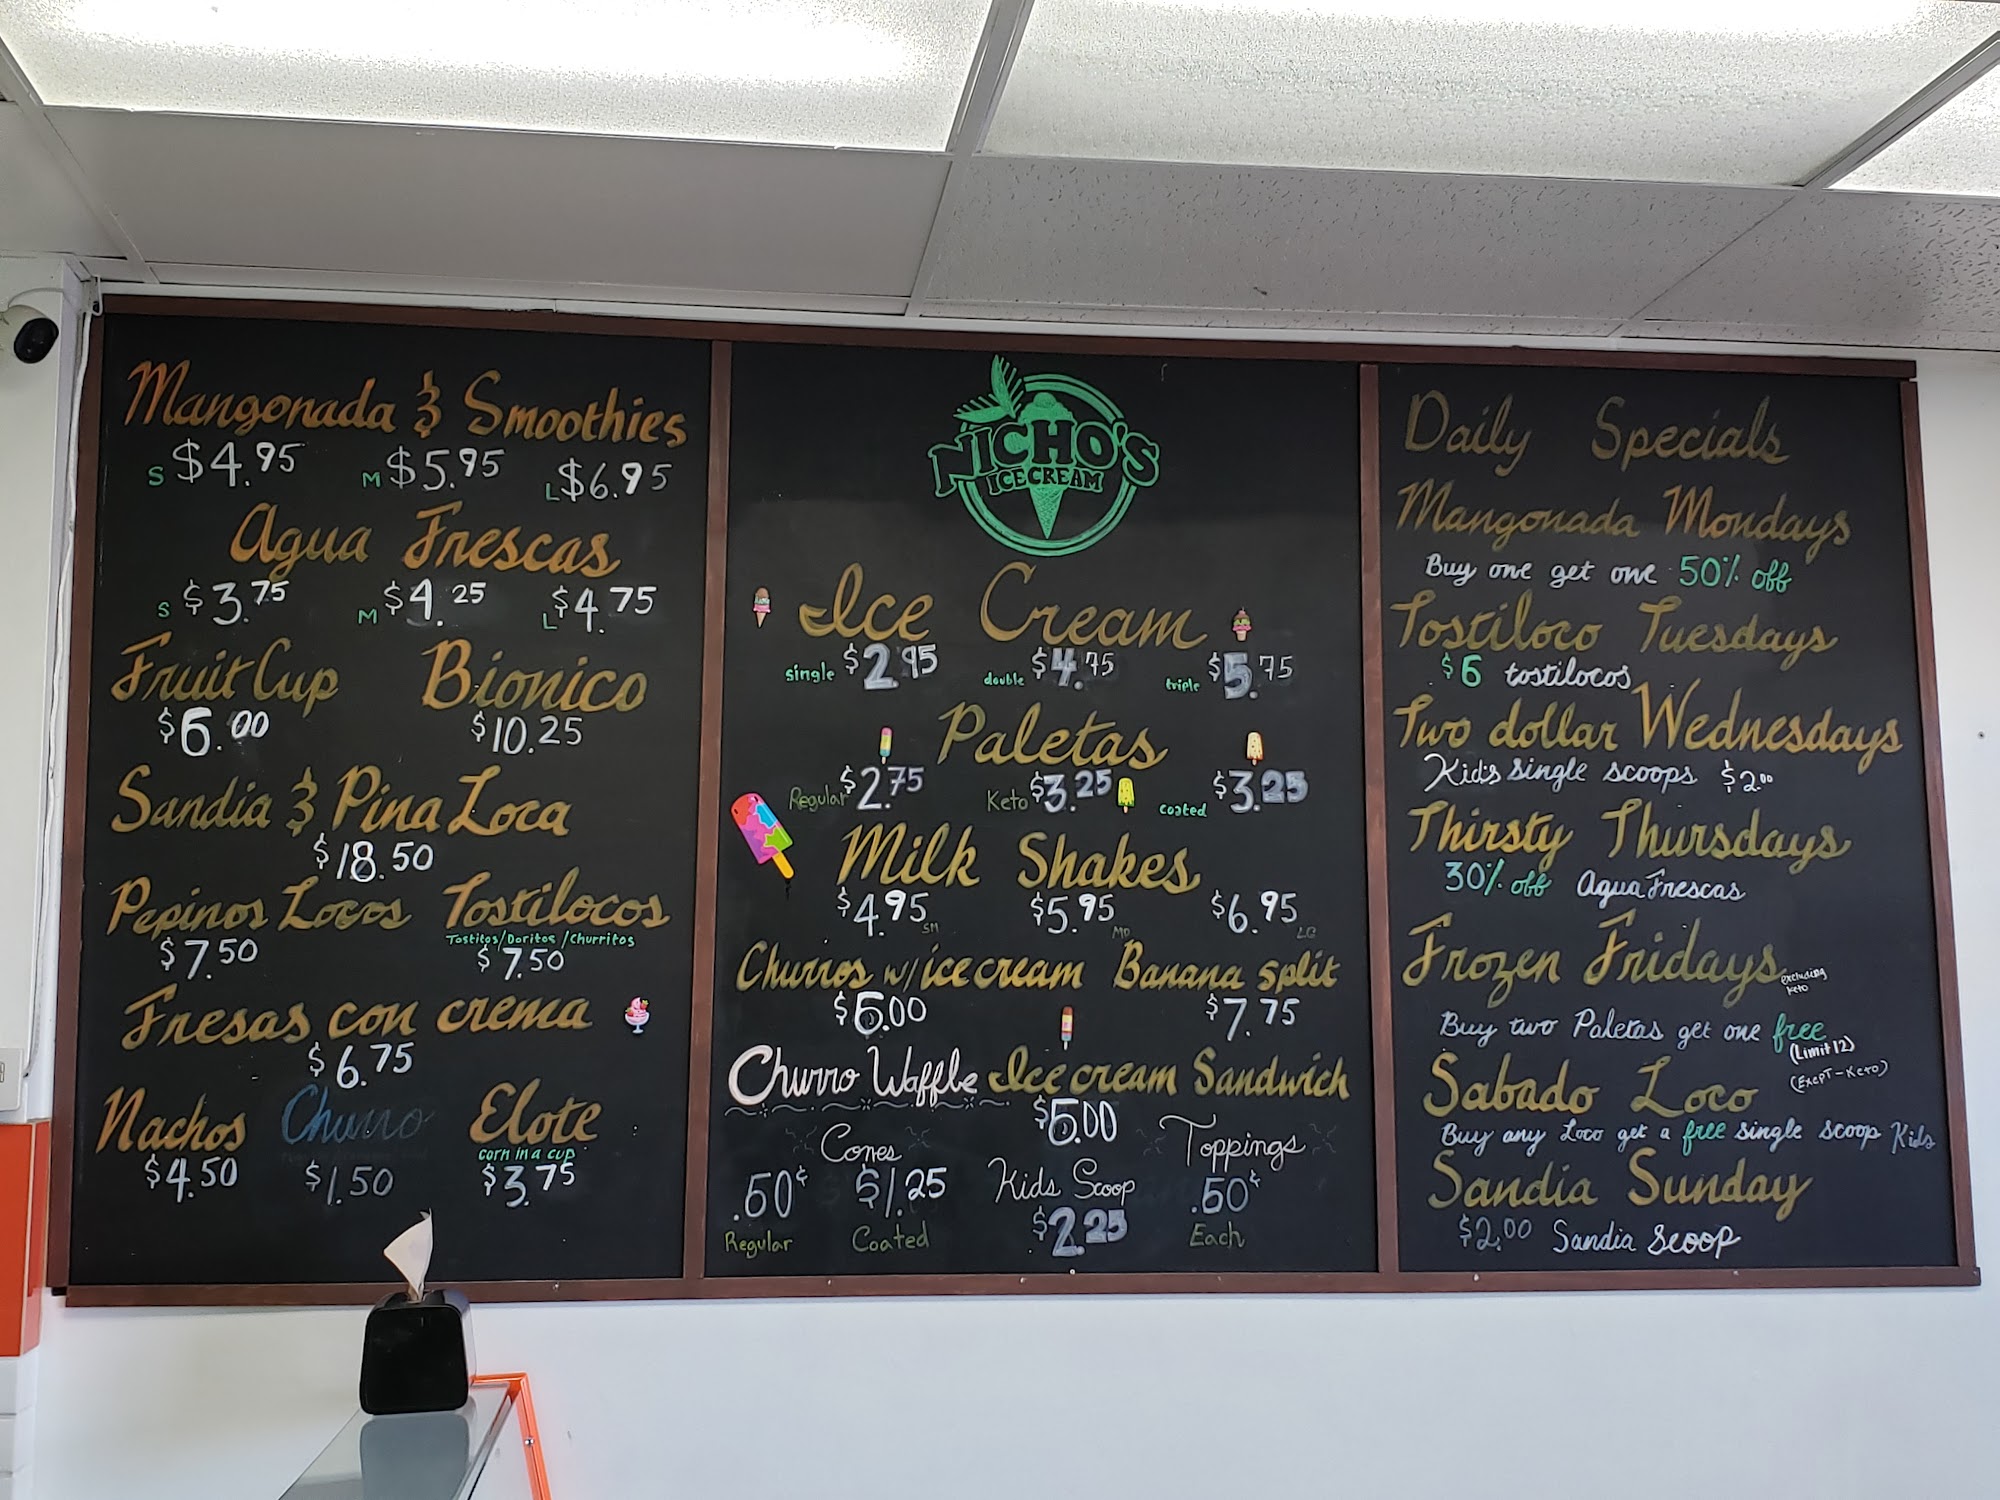 Mangonada & Smoothies
S $4.95 M $5.95 L $6.95
Agua Frescas
S $3.75 M $4.25 L $4.75
Fruit Cup Bionico
$6.00 $10.25
Sandia & Pina Loca
$18.50
Pepinos Locos Tostilocos
Tostitos/Doritos/Churritos
$7.50 $7.50
Fresas con crema
$6.75
Nachos Churro Elote
corn in a cup
$4.50 $1.50 $3.75
NICHO'S
ICE CREAM
Ice Cream
single $2.95 double $4.75 triple $5.75
Paletas
Regular $2.75 Keto $3.25 coated $3.25
Milk Shakes
$4.95 SM $5.95 MD $6.95 LG
Churros w/ ice cream Banana split
$6.00 $7.75
Churro Waffle Ice cream Sandwich
$6.00
Cones Toppings
.60¢ $1.25 Kids Scoop .60¢
Regular Coated $2.25 Each
Daily Specials
Mangonada Mondays
Buy one get one 50% off
Tostiloco Tuesdays
$6 tostilocos
Two dollar Wednesdays
Kid's single scoops $2.00
Thirsty Thursdays
30% off Agua Frescas
Frozen Fridays excluding
keto
Buy two Paletas get one free
(Limit 12)
(Exept-Keto)
Sabado Loco
Buy any Loco get a free single scoop Kids
Sandia Sunday
$2.00 Sandia scoop